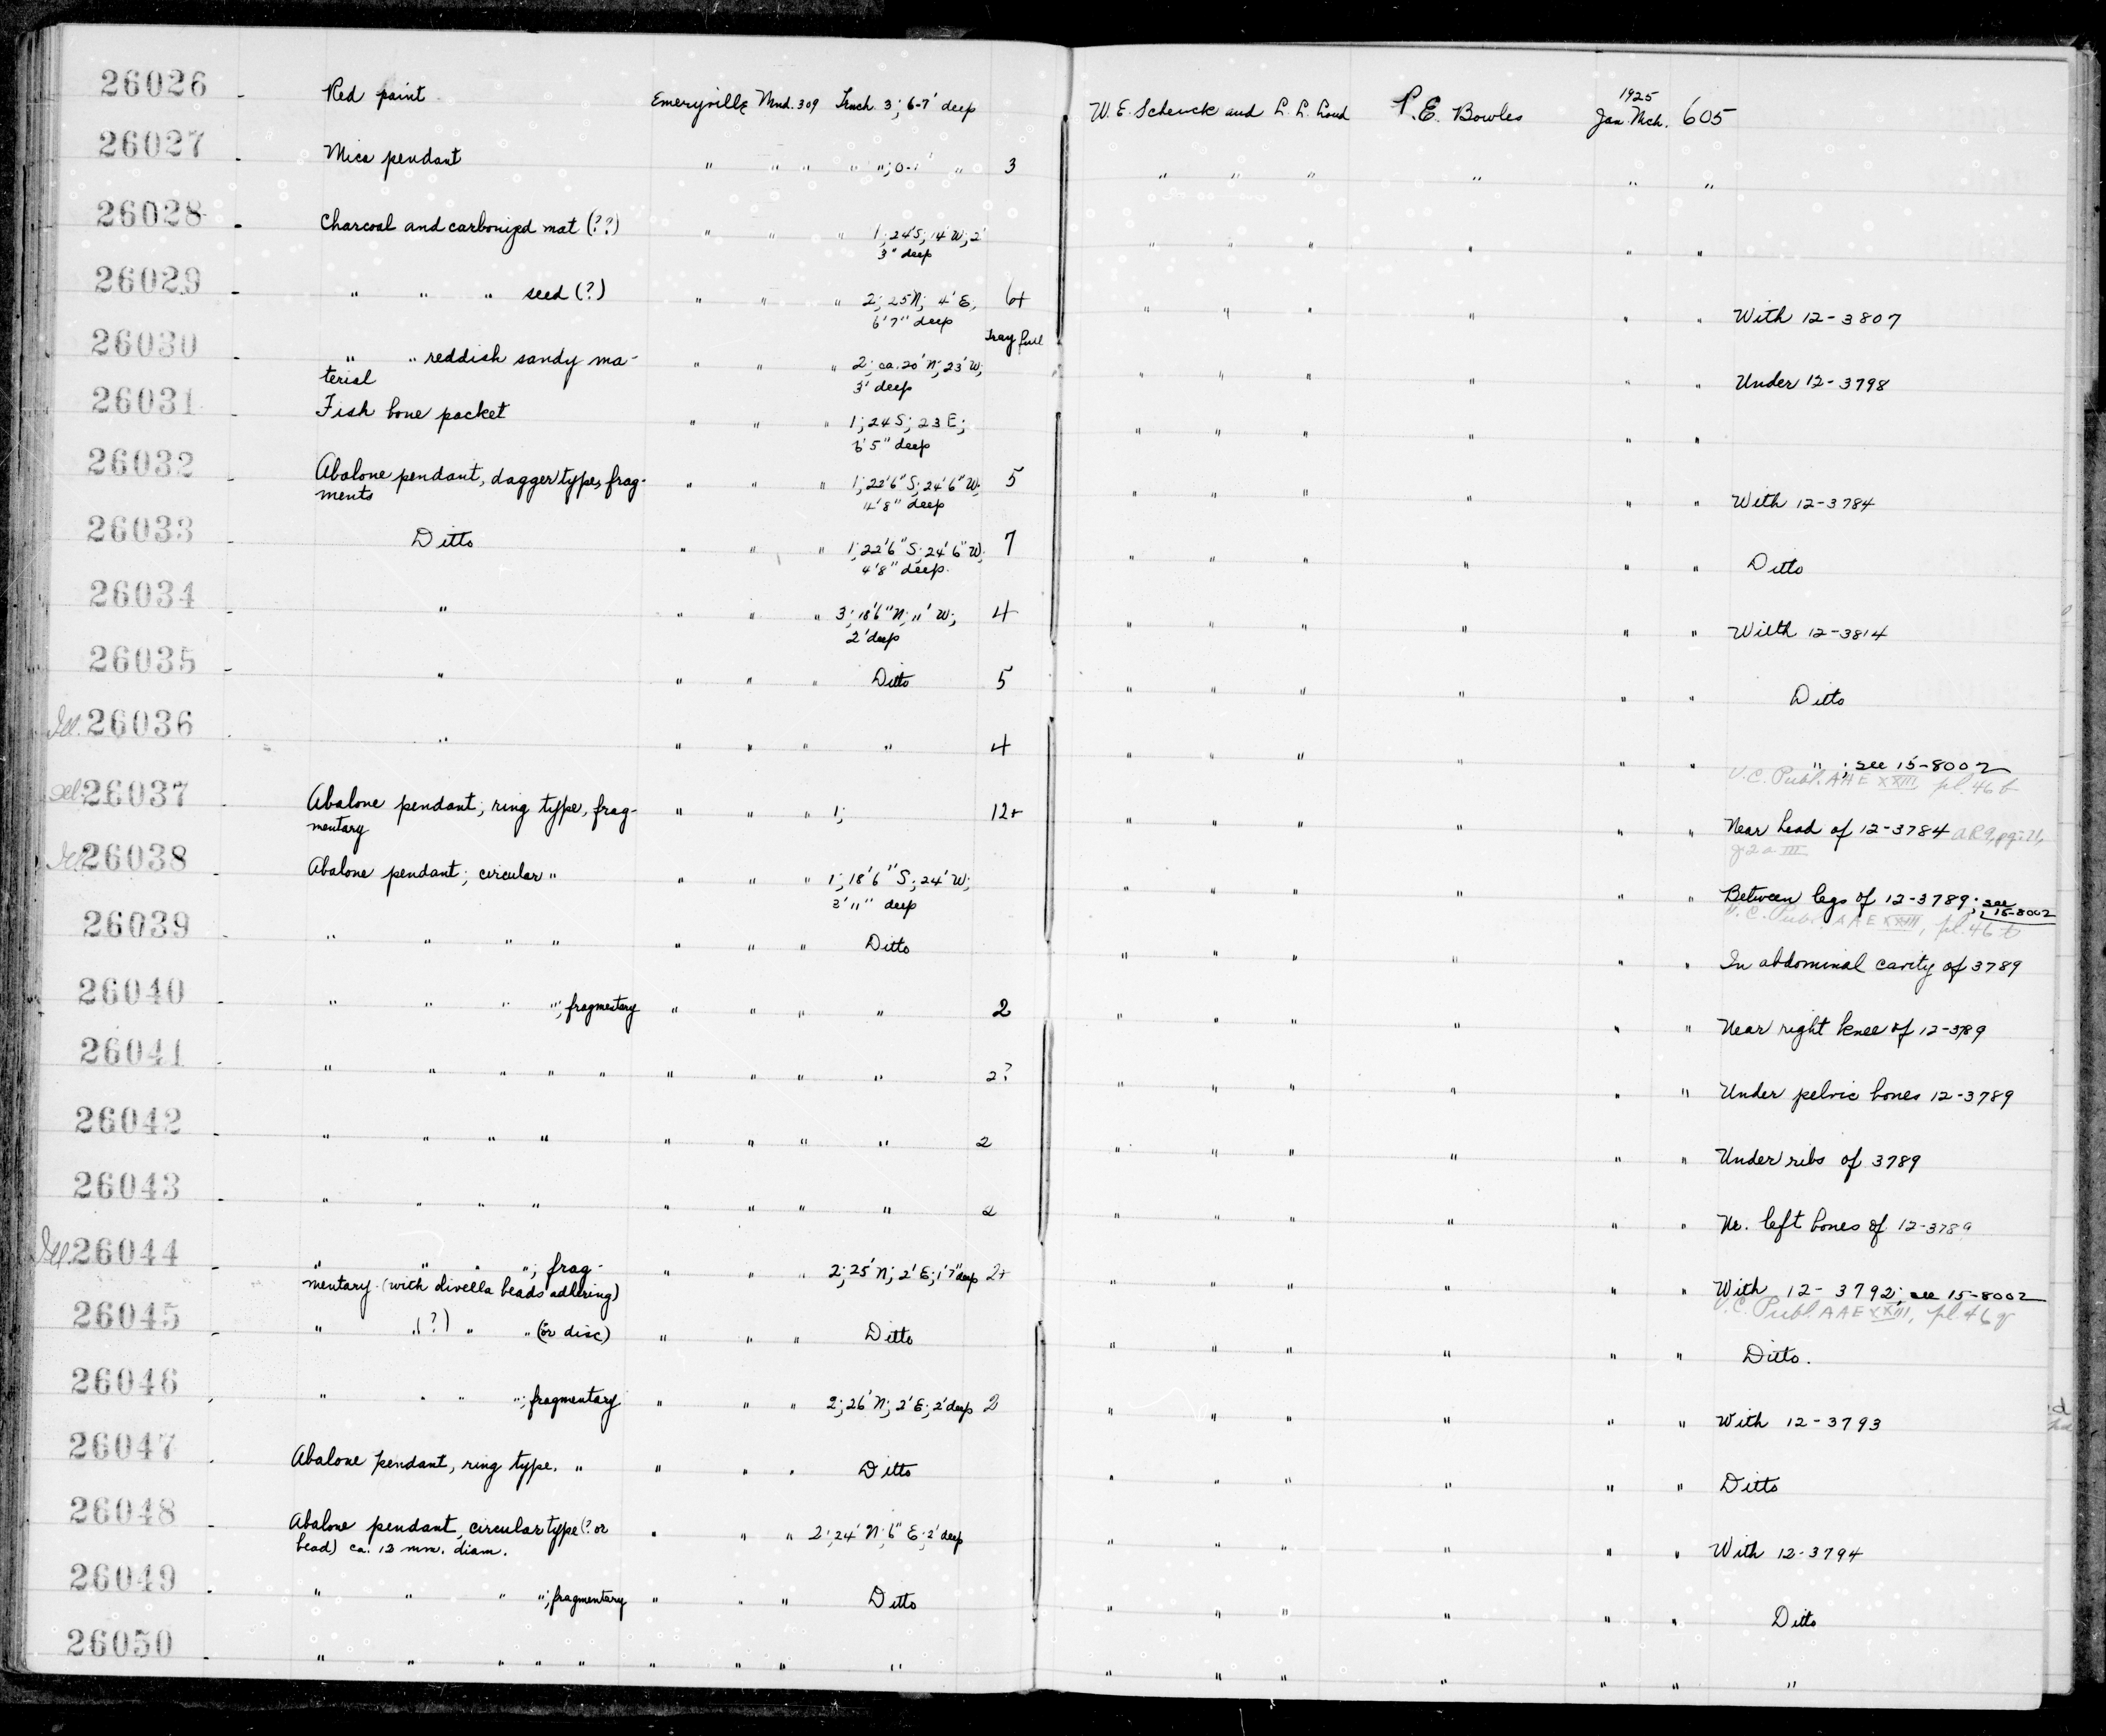 26026 - Red paint Emeryville Mnd. 309 Trench 3; 6-7' deep W. E. Schenck and L. L. Loud P. E. Bowles 1925 Jan. Mch. 605
26027 - Mica pendant " " " " "; 0-1' " 3 " " " " " "
26028 - Charcoal and carbonized mat (??) " " " 1; 24'S; 14'W; 2' " " " " " "
3" deep
26029 - " " " seed (?) " " " 2; 25 N; 4' E, 6+ " " " " " " With 12-3807
6'7" deep
26030 - " " reddish sandy ma- " " " 2; ca. 20' N; 23' W; Tray full " " " " " " Under 12-3798
terial 3' deep
26031 - Fish bone packet " " " 1; 24 S; 23 E; " " " " " "
6'5" deep
26032 - Abalone pendant, dagger type, frag- " " " 1; 22'6" S; 24'6" W; 5 " " " " " " With 12-3784
ments 4'8" deep
26033 - Ditto " " " 1; 22'6" S; 24'6" W; 7 " " " " " " Ditto
4'8" deep.
26034 - " " " " 3; 18'6" N; 11' W; 4 " " " " " " With 12-3814
2' deep
26035 - " " " " Ditto 5 " " " " " " Ditto
Ill. 26036 - " " " " " 4 " " " " " " "; see 15-8002
U.C. Publ. AAE XXIII, pl. 46 b
Ill. 26037 - Abalone pendant; ring type, frag- " " " 1; 12+ " " " " " " Near head of 12-3784
mentary
Ill. 26038 - Abalone pendant; circular " " " " 1; 18'6" S; 24' W; " " " " " " Between legs of 12-3789; see 15-8002
3'11" deep U.C. Publ. AAE XXIII, pl. 46 t
26039 - " " " " " " " Ditto " " " " " " In abdominal cavity of 3789
26040 - " " " "; fragmentary " " " " 2 " " " " " " Near right knee of 12-3789
26041 - " " " " " " " " " 2? " " " " " " Under pelvic bones 12-3789
26042 - " " " " " " " " 2 " " " " " " Under ribs of 3789
26043 - " " " " " " " " 2 " " " " " " Nr. left bones of 12-3789
Ill. 26044 - " " "; frag- " " " 2; 25' N; 2' E; 1'7" deep 2+ " " " " " " With 12-3792; see 15-8002
mentary (with olivella beads adhering) U.C. Publ. AAE XXIII, pl. 46 q
26045 - " "(?) " " (or disc) " " " Ditto " " " " " " Ditto.
26046 - " " " "; fragmentary " " " 2; 26' N; 2' E; 2' deep 2 " " " " " " With 12-3793
26047 - Abalone pendant, ring type. " " " " Ditto " " " " " " Ditto
26048 - Abalone pendant, circular type (? or " " " 2; 24' N; 6" E; 2' deep " " " " " " With 12-3794
bead) ca. 12 mm. diam.
26049 - " " " "; fragmentary " " " Ditto " " " " " " Ditto
26050 - " " " " " " " " " " " " " " " "